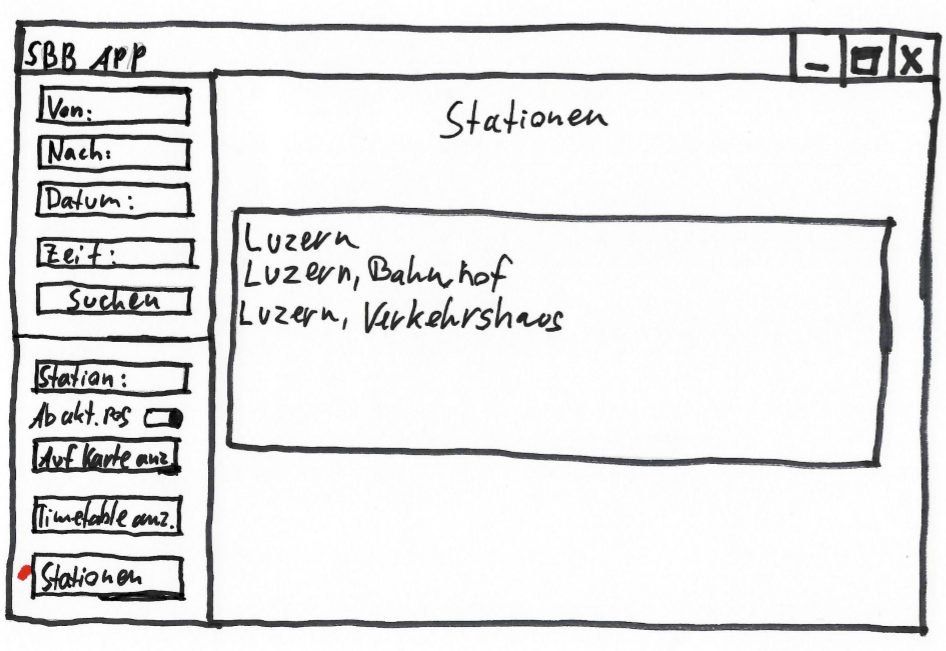 SBB APP
Von:
Nach:
Datum:
Zeit:
Suchen
Station:
Ab akt. Pos
Auf Karte anz.
Timetable anz.
Stationen
Stationen
Luzern
Luzern, Bahnhof
Luzern, Verkehrshaus